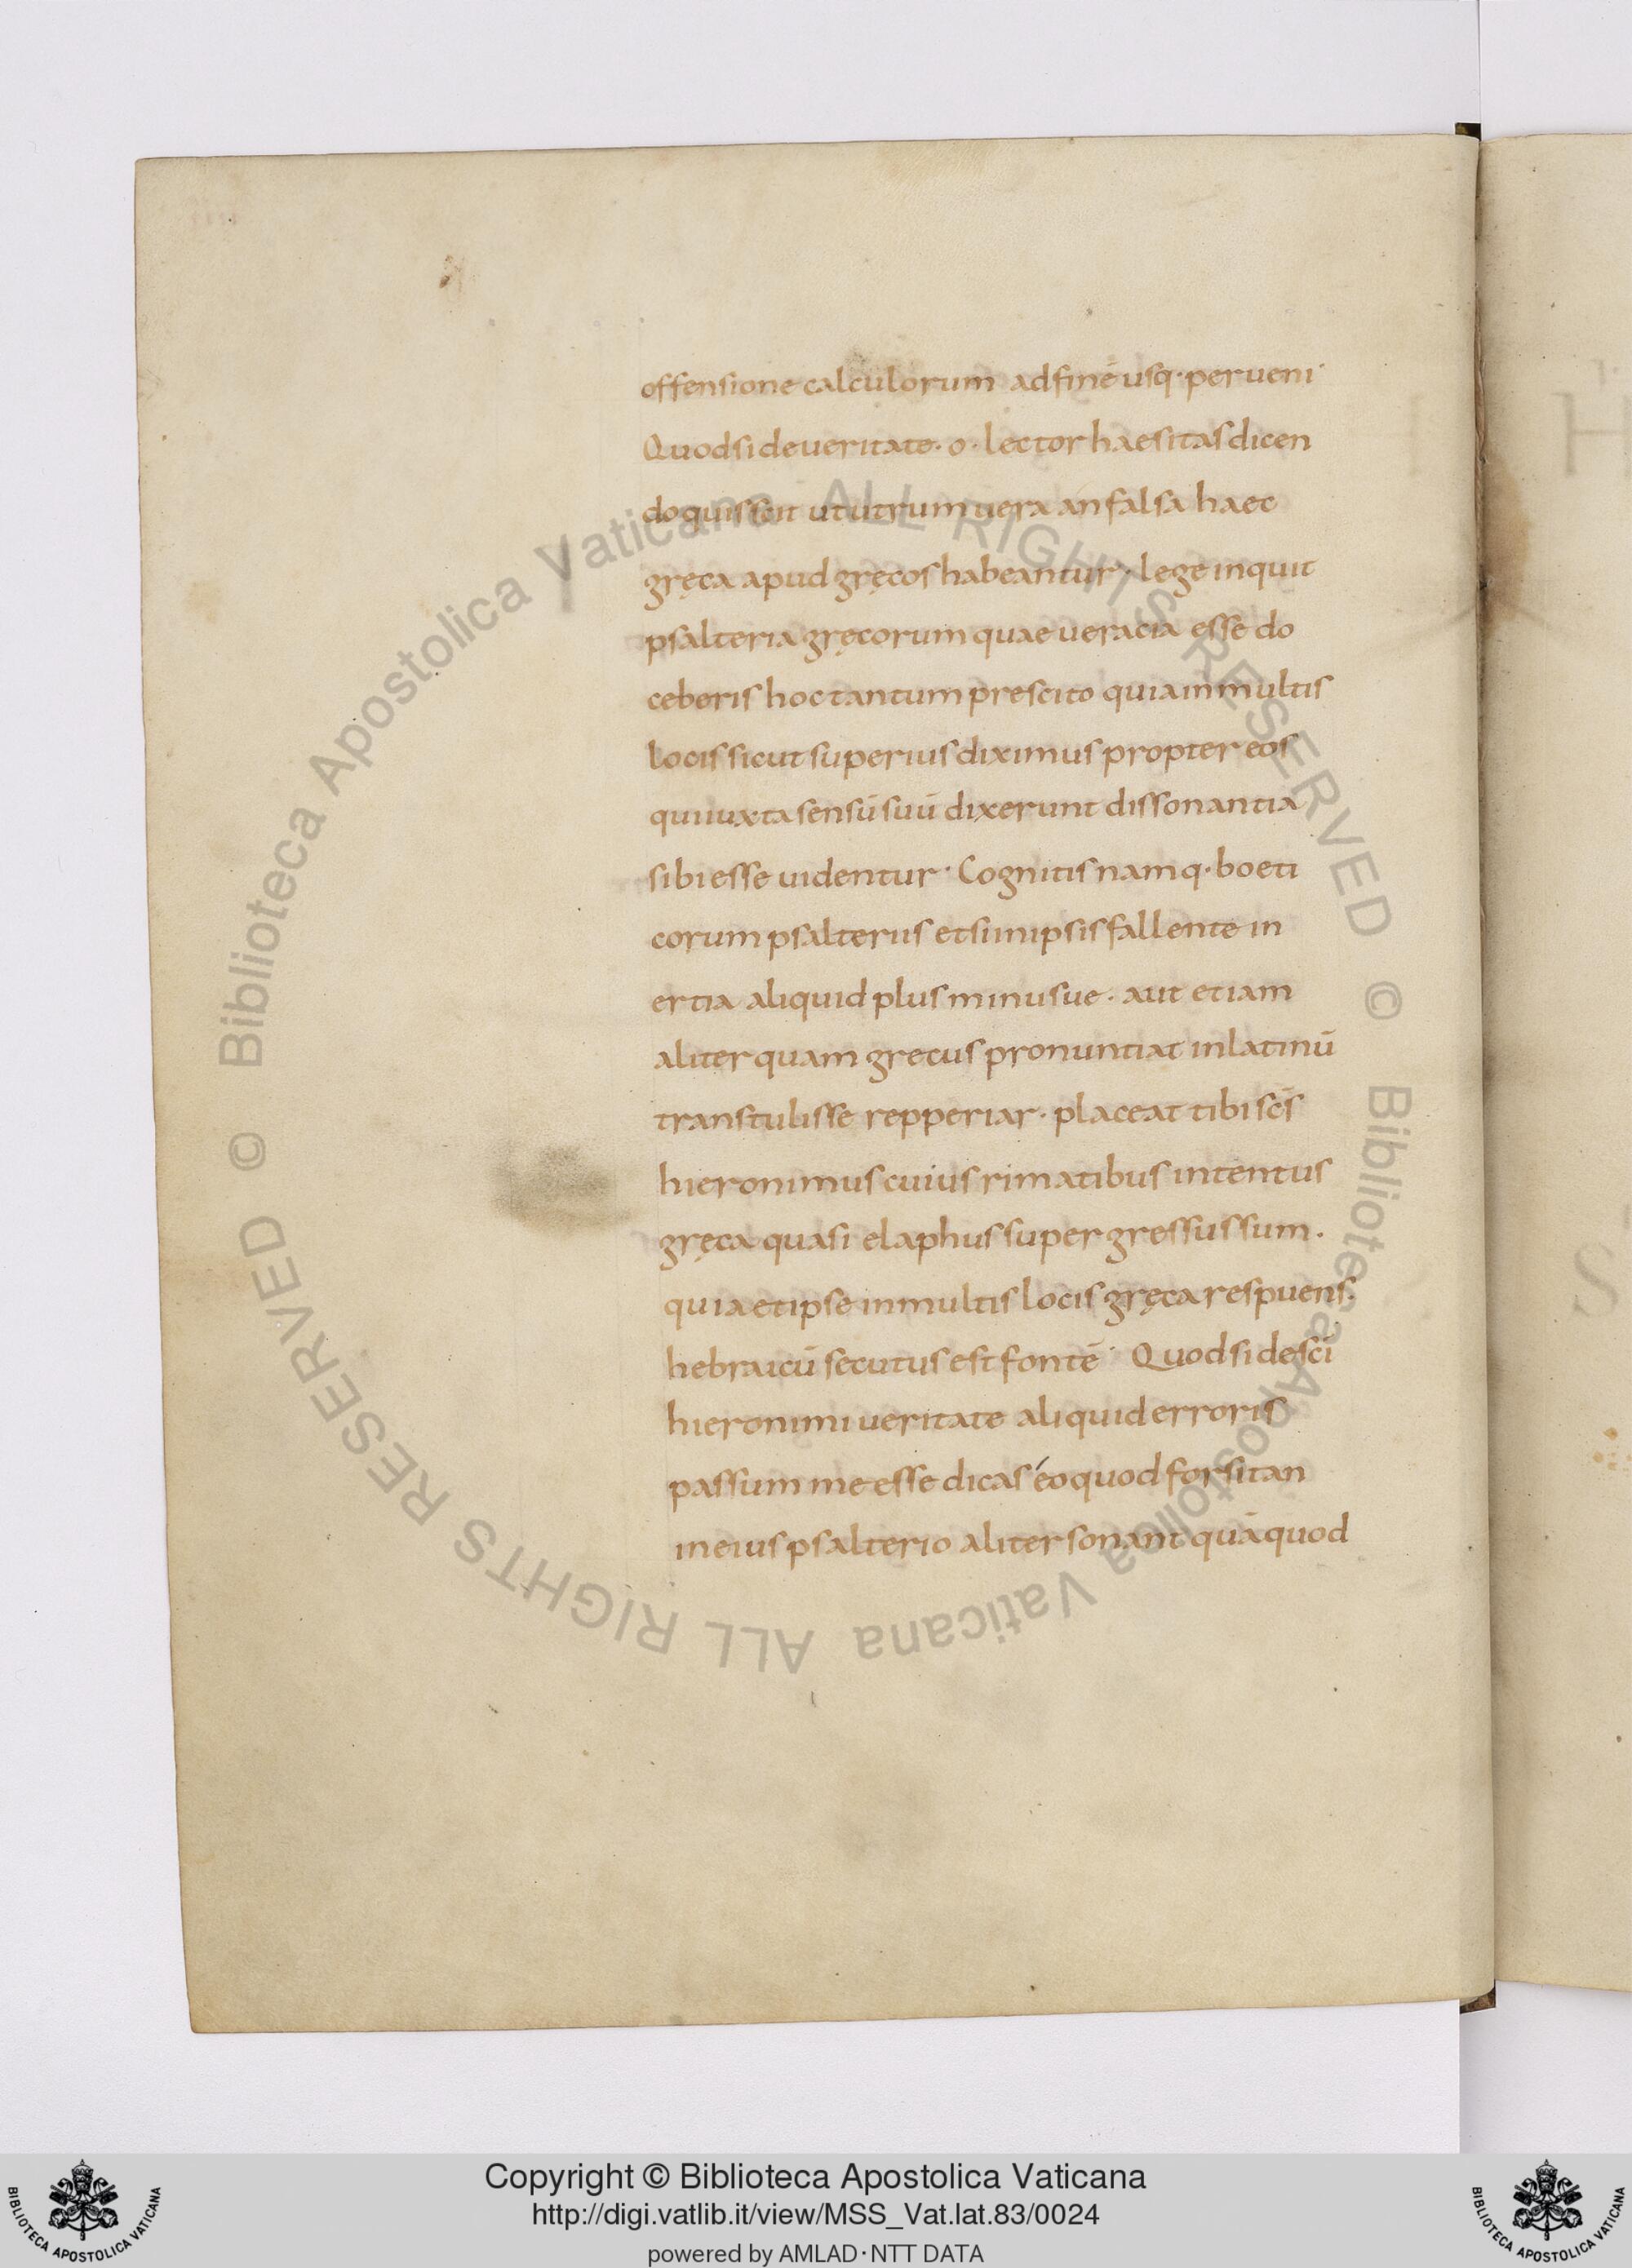 offensione calculorum adfinē usq· perueni·
Quodsi deueritate· o· lector haesitas dicen
do quis scit ut utrum uera an falsa haec
gręca apud gręcos habeantur· lege inquit
psalteria gręcorum quae ueracia esse do
ceberis hoc tantum prescito quia inmultis
locis sicut superius diximus propter eos
qui iuxta sensū suū dixerunt dissonantia
sibi esse uidentur· Cognitis namq· boeti
corum psalteriis etsi inipsis fallente in
ertia aliquid plus minusue· aut etiam
aliter quam grecus pronuntiat inlatinū
transtulisse repperiar· placeat tibi sc̄s
hieronimus cuius rimatibus intentus
gręca quasi elaphus supergressus sum·
quia et ipse inmultis locis gręca respuens·
hebraicū secutus est fontē· Quodsi desc̄i
hieronimi ueritate aliquid erroris
passum me esse dicas éo quod forsitan
in eius psalterio aliter sonant quā quod
© Biblioteca Apostolica Vaticana ALL RIGHTS RESERVED
© Biblioteca Apostolica Vaticana ALL RIGHTS RESERVED
H
S
Copyright © Biblioteca Apostolica Vaticana
http://digi.vatlib.it/view/MSS_Vat.lat.83/0024
powered by AMLAD·NTT DATA
BIBLIOTECA APOSTOLICA VATICANA
BIBLIOTECA APOSTOLICA VATICANA